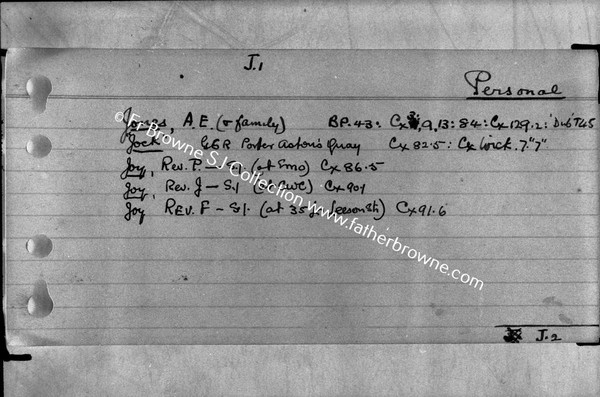 J.1
Personal
Jones, A.E. (& family) BP.43: Cx 3, 9, 13: 84: Cx 129.2:
"Jock" G&R Porter Aston's Quay Cx 82.5: Cx Wick. 7."7"
Joy, Rev. P. – S.J. (at Emo) Cx 86.5
Joy, Rev. J – S.J (at CWC) Cx 901
Joy Rev. F – S.J. (at 35 Lr Leeson St) Cx 91.6
J.2
© Fr Browne S.J Collection www.fatherbrowne.com